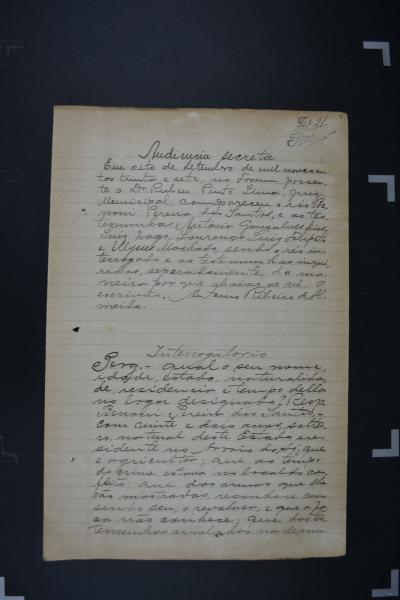 Fls 21
Audiencia secreta
Em oito de setembro de mil novecen
tos trinta e sete, no forum, presen
te o Dr. Ruben Pinto Lima, Juiz
Municipal, compareceu o réo Be
noni Pereira dos Santos, e as tes
temunhas Antonio Gonçalves Dias,
Luis Iago, Lourenço Luis Felipeto
e Ulysses Machado, sendo o réo in
terrogado e as testemunhas inqui
ridas, separadamente, da ma
neira por que abaixo se vê. O
escrivão, Antonio Ribeiro de Al
meida.
Interrogatorio
Perg. - qual o seu nome,
idade, estado, naturalida
de, residencia e tempo della
no logar designado? Resp.
Benoni Pereira dos Santos,
com vinte e dois annos, soltei
ro, natural deste Estado e re
sidente no Arroio do; que
é agricultor; que ao tempo
do crime estava no local do con
flicto; que das armas que lhe
são mostradas, reconhece como
sendo seu, o revolver, e que a
não conhece; que das tes
temunhas arroladas na denun